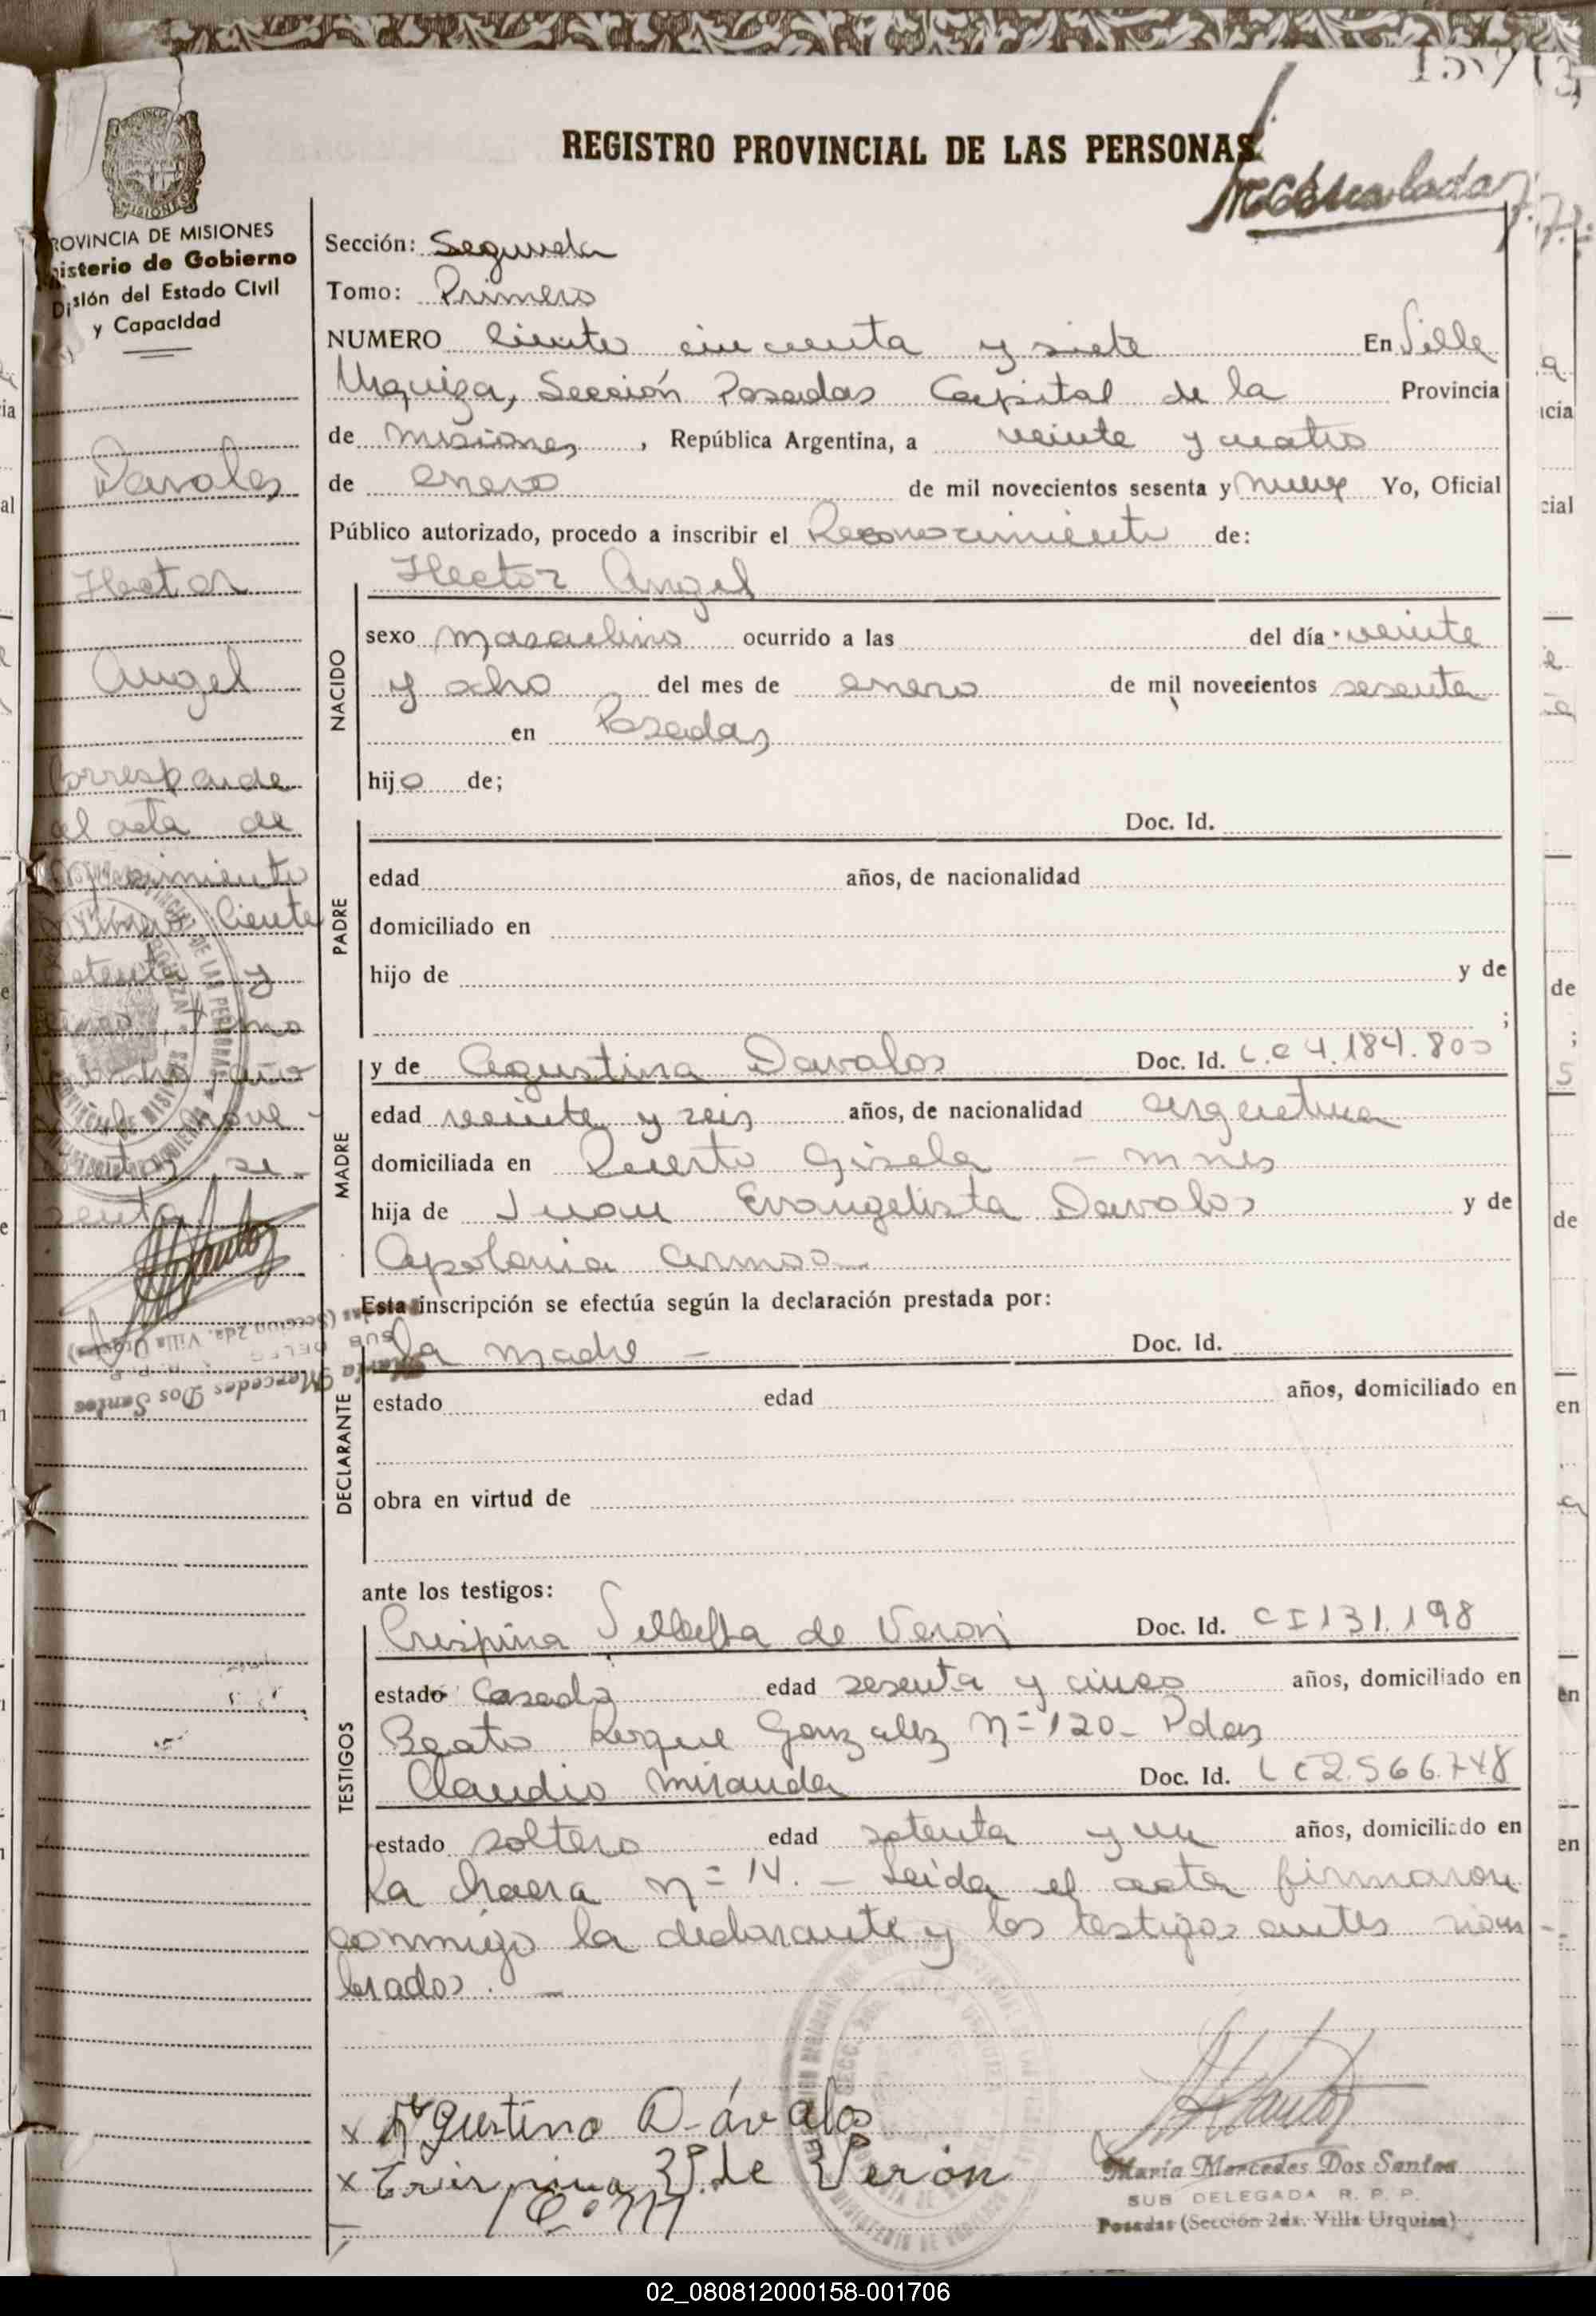 157
REGISTRO PROVINCIAL DE LAS PERSONAS
PROVINCIA DE MISIONES
Ministerio de Gobierno
División del Estado Civil
y Capacidad
Sección: Segunda
Tomo: Primero
NUMERO Ciento cincuenta y siete En Villa
Urquiza, Sección Posadas Capital de la Provincia
de Misiones, República Argentina, a veinte y cuatro
de enero de mil novecientos sesenta y nueve Yo, Oficial
Público autorizado, procedo a inscribir el Reconocimiento de:
Hector Angel
NACIDO
sexo masculino ocurrido a las del día veinte
y ocho del mes de enero de mil novecientos sesenta
en Posadas
hijo de;
PADRE
Doc. Id.
edad años, de nacionalidad
domiciliado en
hijo de y de
;
MADRE
y de Agustina Davalos Doc. Id. L.C 4.184.800
edad veinte y seis años, de nacionalidad argentina
domiciliada en Puerto Gisela - Mnes
hija de Juan Evangelista Davalos y de
Apolonia Armoa
Esta inscripción se efectúa según la declaración prestada por:
DECLARANTE
La madre - Doc. Id.
estado edad años, domiciliado en
obra en virtud de
ante los testigos:
TESTIGOS
Crispina de Veron Doc. Id. CI 131.198
estado Casada edad sesenta y cinco años, domiciliado en
Beato Roque Gonzalez N= 120- Pdas
Claudio Miranda Doc. Id. 2.566.748
estado soltero edad setenta y un años, domiciliado en
La chacra n= 14. - Leida el acta firmaron
conmigo la declarante y los testigos antes nom-
brados. -
Davalos
Hector
Angel
Corresponde
al acta de
ciento
setenta y
tomo
año
nove-
cientos se-
senta
María Mercedes Dos Santos
(Sección 2da. Villa Urquiza)
x Agustina Dávalos
x Crispina de Verón
C. M
María Mercedes Dos Santos
SUB DELEGADA R. P. P.
Posadas (Sección 2da. Villa Urquiza)
02_080812000158-001706